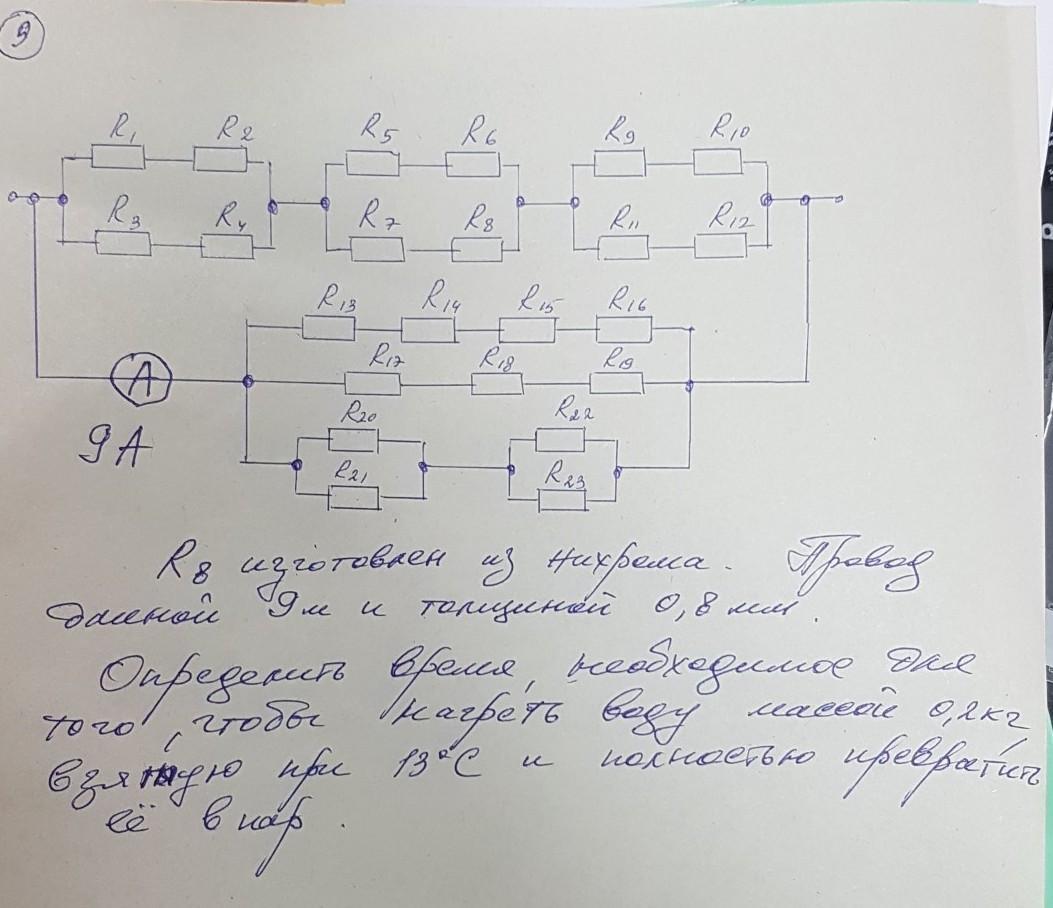 9
R1 R2 R5 R6 R9 R10
R3 R4 R7 R8 R11 R12
R13 R14 R15 R16
R17 R18 R19
A
R20 R22
9А
R21 R23
R8 изготовлен из нихрома. Провод
длиной 9м и толщиной 0,8 мм.
Определить время, необходимое для
того, чтобы нагреть воду массой 0,2кг,
взятую при 13°С и полностью превратить
её в пар.